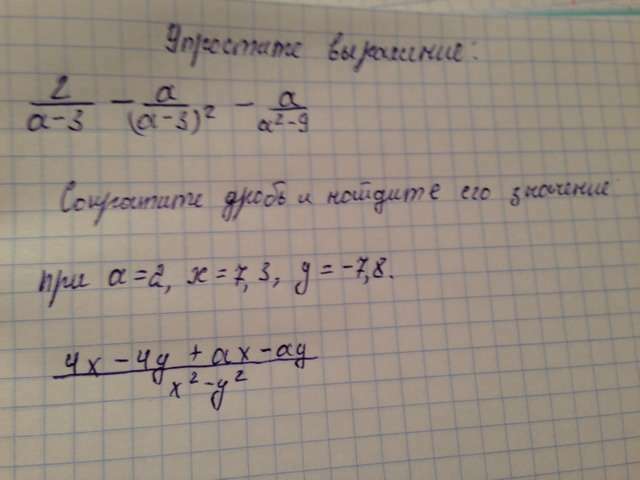 Упростите выражение:
2/(a-3) - a/(a-3)² - a/(a²-9)
Сократите дробь и найдите его значение
при a=2, x=7,3, y=-7,8.
(4x-4y+ax-ay)/(x²-y²)